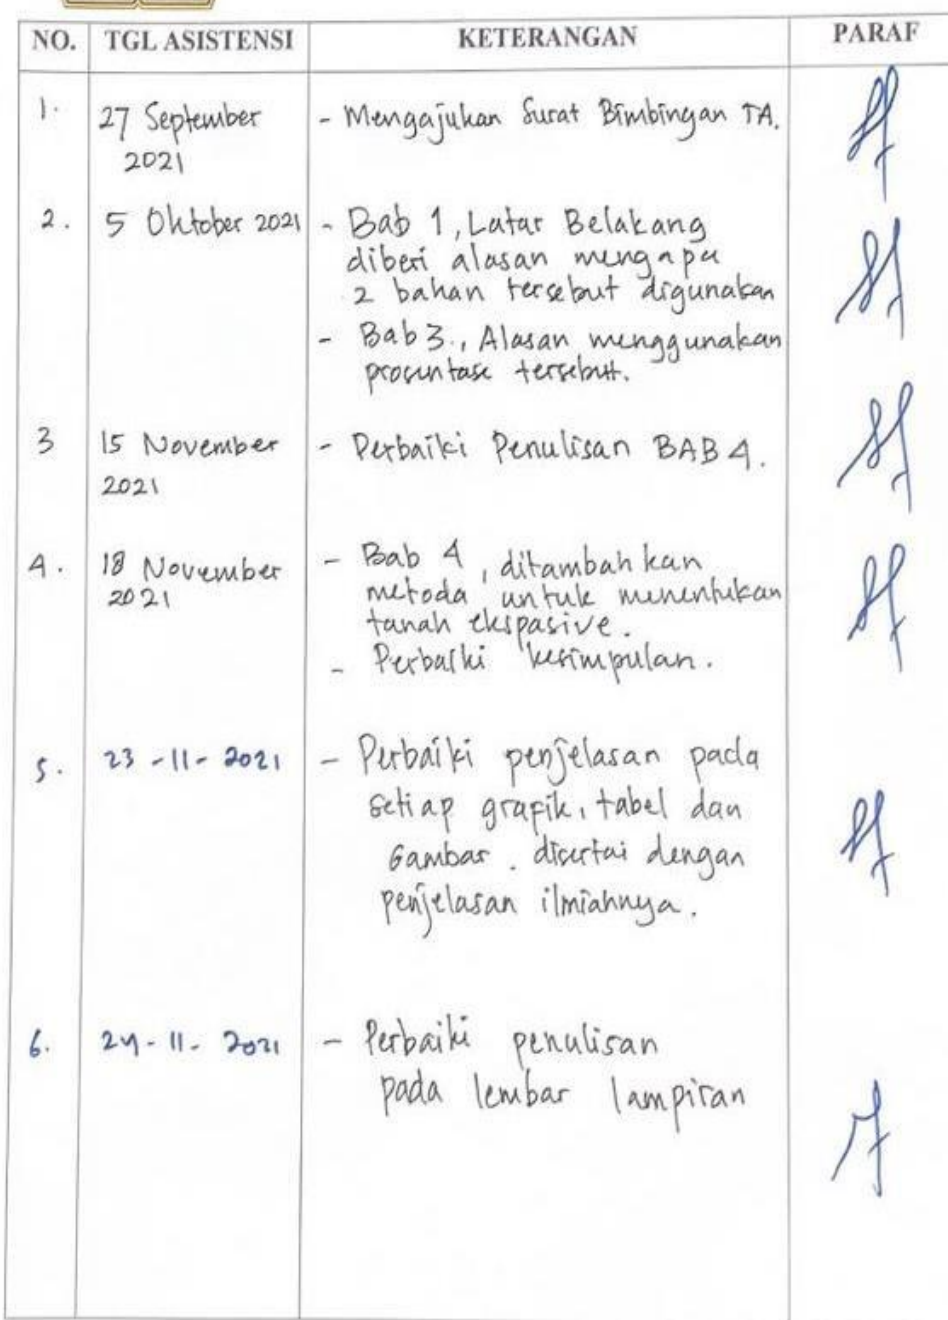 NO. TGL ASISTENSI KETERANGAN PARAF
1. 27 September - Mengajukan Surat Bimbingan TA.
2021
2. 5 Oktober 2021 - Bab 1, Latar Belakang
diberi alasan mengapa
2 bahan tersebut digunakan
- Bab 3., Alasan menggunakan
prosentase tersebut.
3 15 November - Perbaiki Penulisan BAB 4.
2021
4. 18 November - Bab 4, ditambahkan
2021 metoda untuk menentukan
tanah ekspasive.
- Perbaiki kesimpulan.
5. 23-11-2021 - Perbaiki penjelasan pada
setiap grafik, tabel dan
Gambar. disertai dengan
penjelasan ilmiahnya.
6. 24-11-2021 - Perbaiki penulisan
pada lembar lampiran